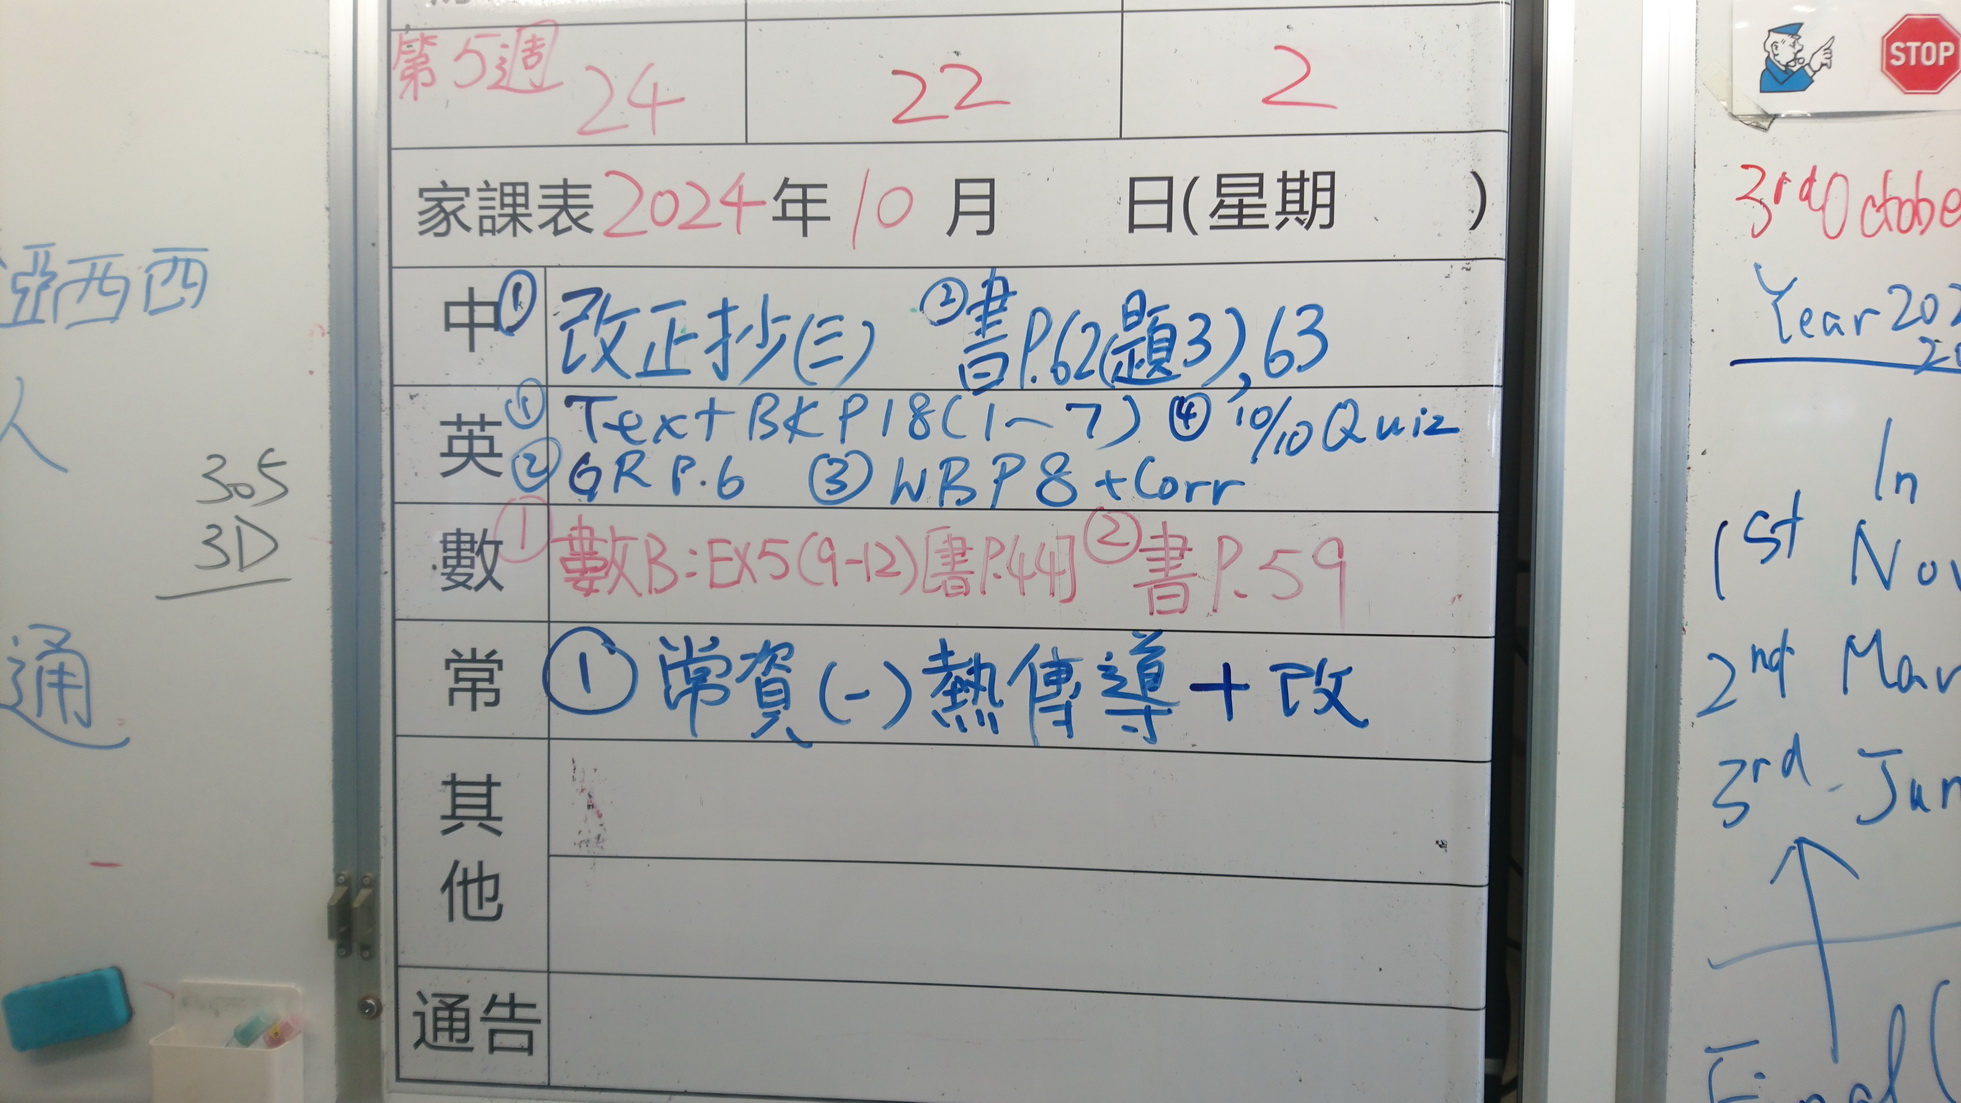 亞西西
人
305
3D
通
第5週 24 22 2
家課表 2024年10月 日(星期 )
中 ① 改正抄(三) ②書P.62(題3),63
英 ① Text BK P18(1~7) ④ 10/10 Quiz
② GR P.6 ③ WB P8 + Corr
數 ① 數B:EX5(9-12)[書P.44] ②書P.59
常 ① 常資(一)熱傳導+改
其他
通告
STOP
3rd Octobe
Year 202
In
1st Nov
2nd Mar
3rd Jun
Final (